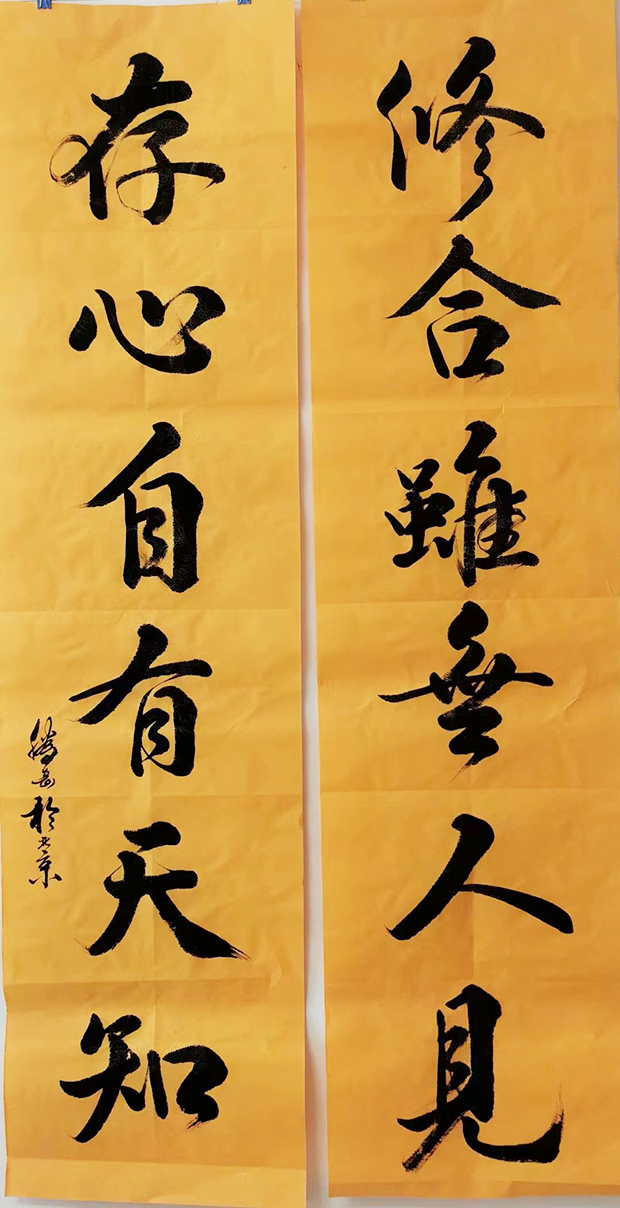 修合雖無人見
存心自有天知
岳於北京